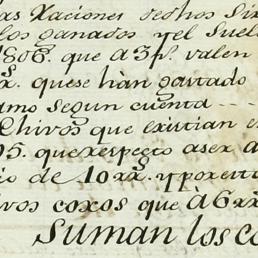 as Raciones de dhos Six
los ganados y el Suel
1806. que a 3ps. valen
que se han gastado
umo segun cuenta
Chivos que existian e
95. que respecto a ser a
io de 10 rr. y por esta
ivos coxos que à 6 rr
Suman los co